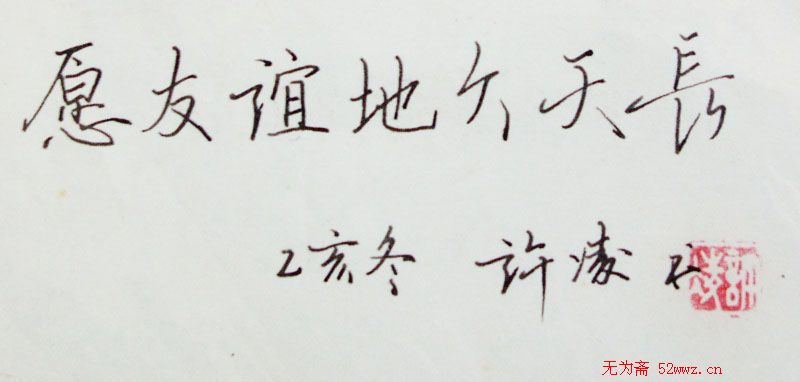 愿友谊地久天長
乙亥冬 許凌
无为斋 52wwz.cn